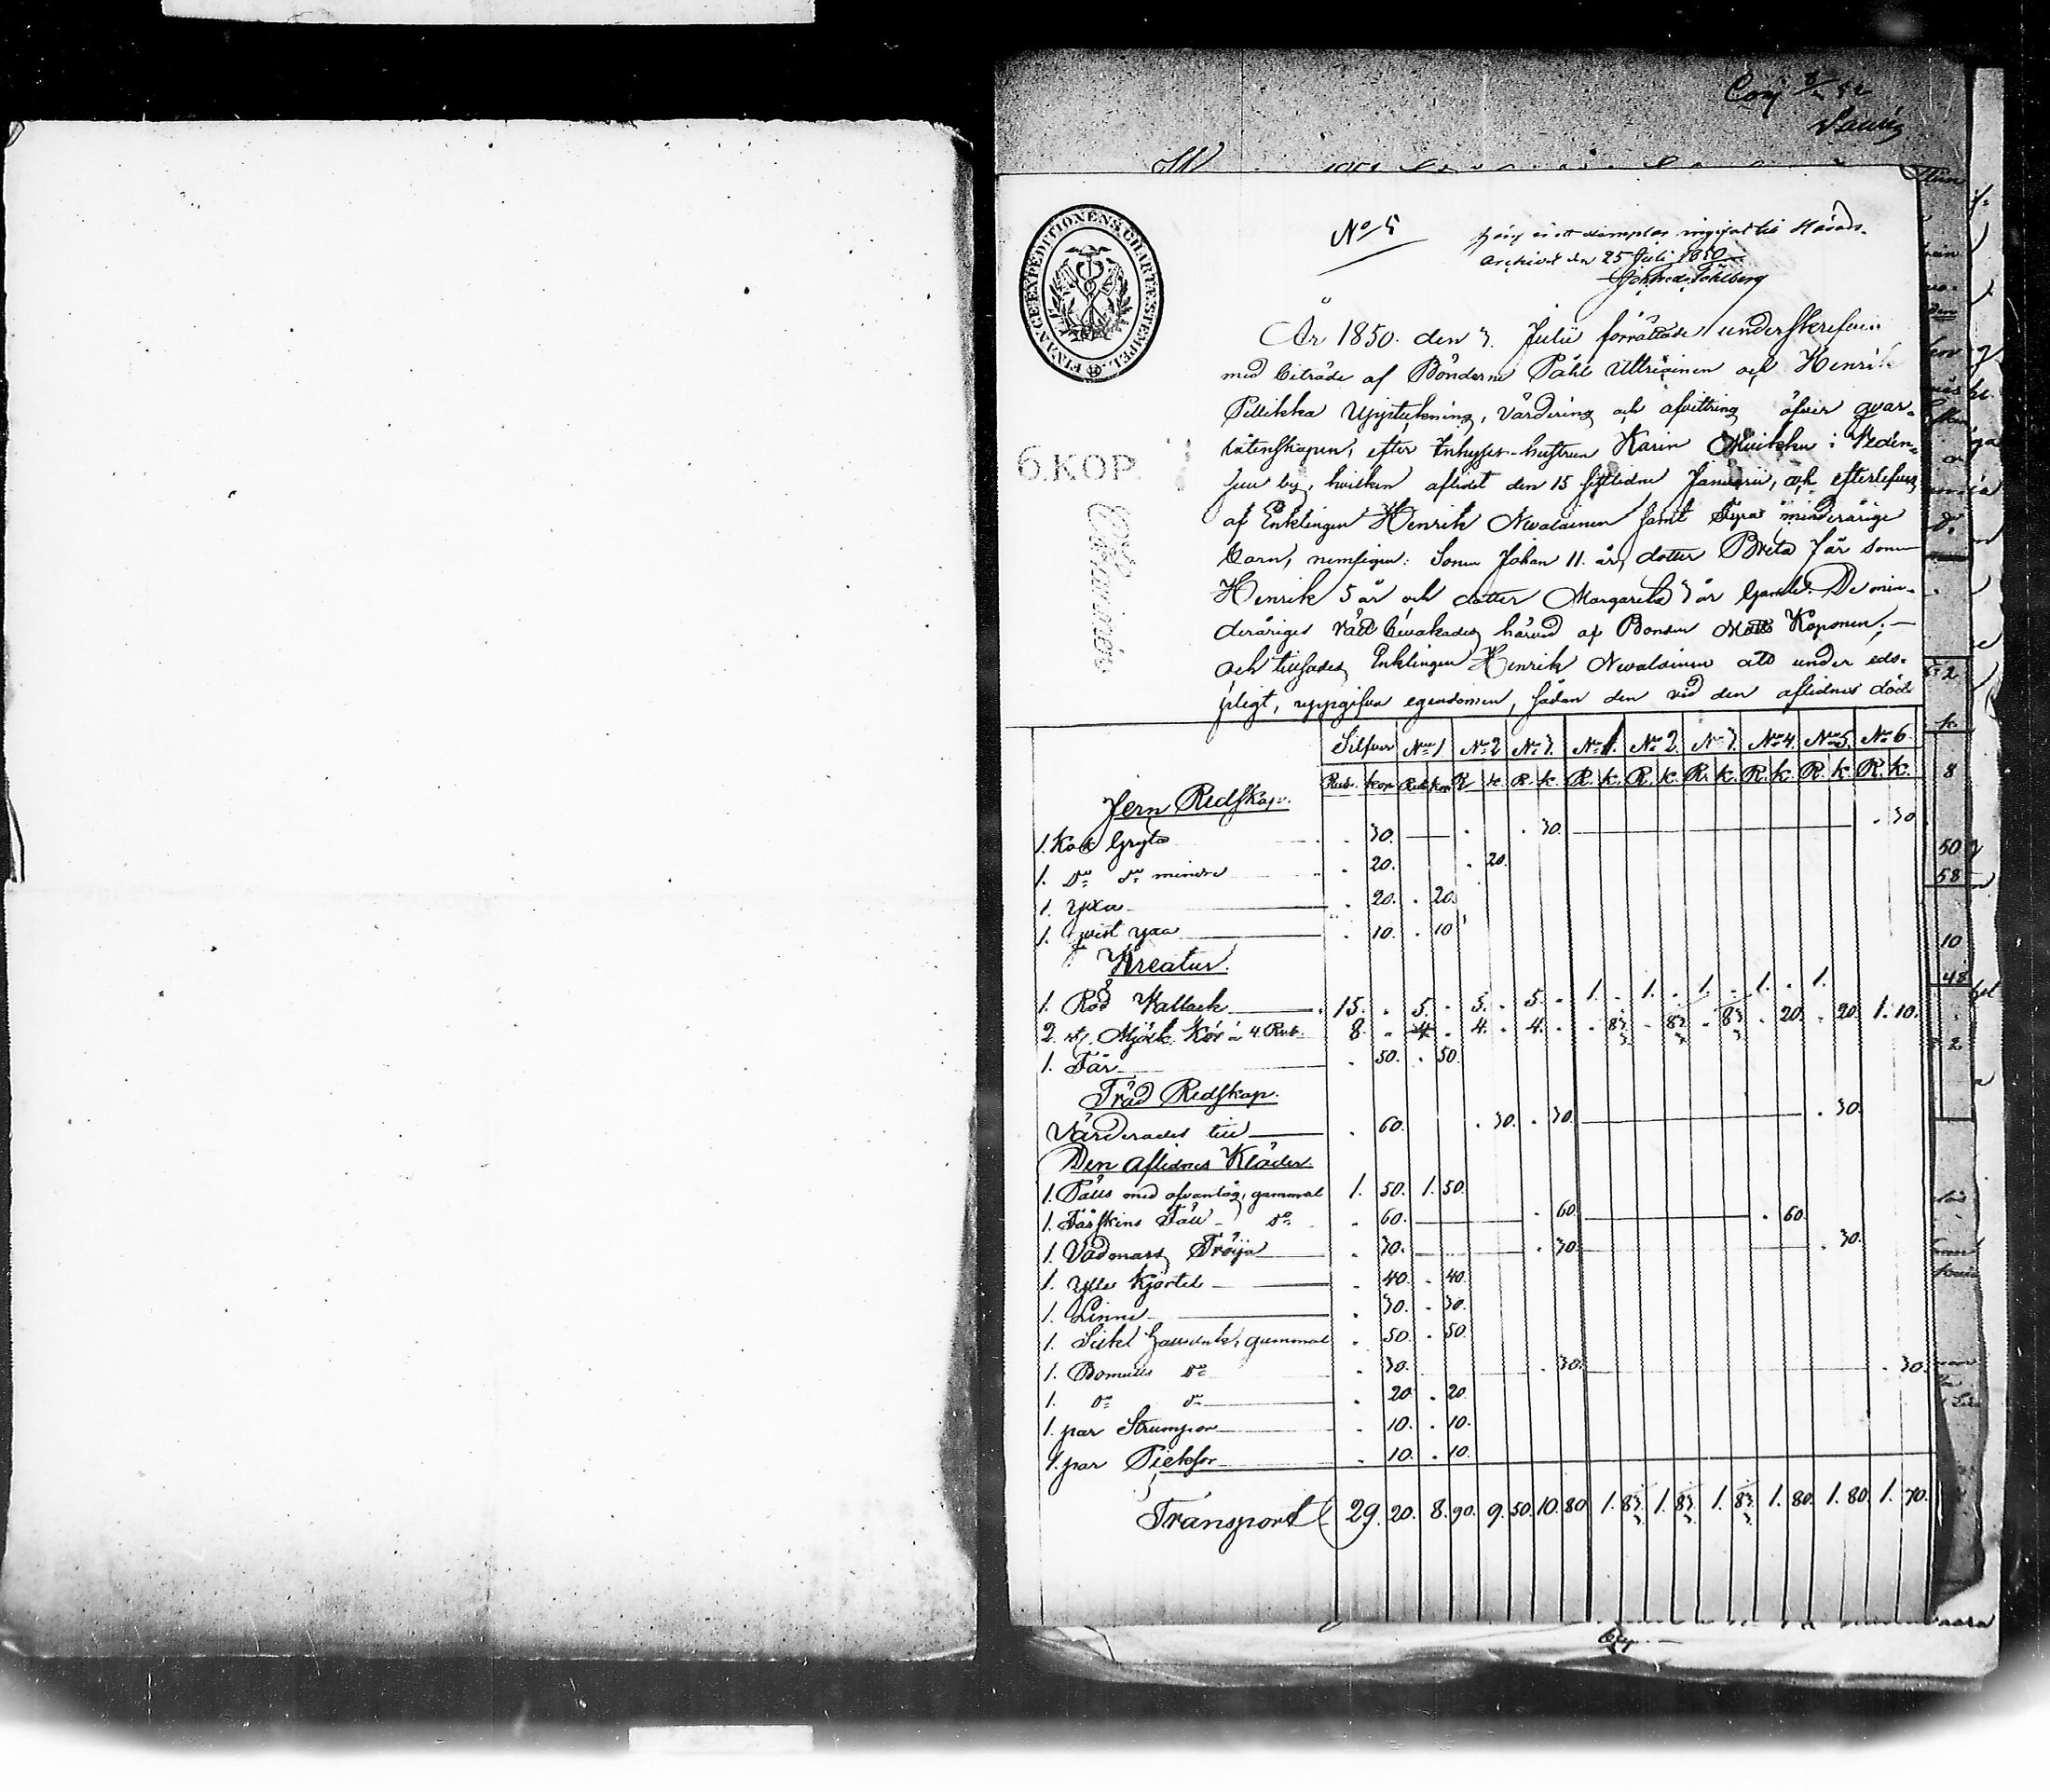 No 5
Häraf är ett exemplar ingifvet till Härads-
Archivet den 25 Juli 1850
FINANCEEXPEDITIONENS CHARTÆ STEMPEL
6.KOP.
År 1850. den 3. Julii förrättade underskrefven
med biträde af Bönderne Påhl Uttriainen och Henrik
Pellikka Uppteckning, värdering och afvittring öfver qvar-
låtenskapen, efter Inhyses-hustrun Karin Muikku i Veden-
suu by, hvilken aflidit den 15 sistlidne Januarii, och efterlefves
af Enklingen Henrik Nevalainen samt fyra minderårige
barn, nemligen: Sonen Johan 11. år, dotter Breta 7 år sonen
Henrik 5 år och dotter Margareta 3 år gamla. De min-
deråriges rätt bevakades härvid af Bonden Matts Koponen; —
och tillsades Enklingen Henrik Nevalainen att under eds-
pligt, uppgifva egendomen, sådan den vid den aflidnes död
Silfver No 1 No 2 No 3. No 1. No 2. No 3. No 4. No 5. No 6
Rub. kop. Rub. kop. R. k. R. k. R. k. R. k. R. k. R. k. R. k. R. k.
Jern Redskap.
1. Kok Gryta . 30. . . 30. . 30
1. Do do mindre . 20. . 20.
1. yxa . 20. . 20.
1. qvist yxa . 10. . 10
Kreatur.
1. Röd Wallack 15. . 5. . 5. . 5. . 1. . 1. . 1. . 1. . 1.
2. st. Mjölk Kor à 4 Rub. 8. . 4. . 4. . 4. . . 83 . 83 . 83 . 20. . 20. 1. 10.
1. Får . 50. . 50.
Träd Redskap.
Värderades till . 60. . 30. . 30. . 30.
Den Aflidnes Kläder.
1. Päls med afvantåg, gammal 1. 50. 1. 50.
1. Fårskins Fäll do . 60. . 60. . 60.
1. Vadmars Tröija . 30. . 30. . 30.
1. ylle Kjortel . 40. . 40.
1. Linne . 30. . 30.
1. Silkes halsduk, gammal . 50. . 50.
1. Bomulls do . 30. . 30. . 30.
1. do do . 20 . 20.
1. par Strumpor . 10. . 10.
1. par Pieksor . 10. . 10.
Transport 29. 20. 8. 90. 9. 50. 10. 80 1. 83 1. 83. 1. 83 1. 80. 1. 80. 1. 70.